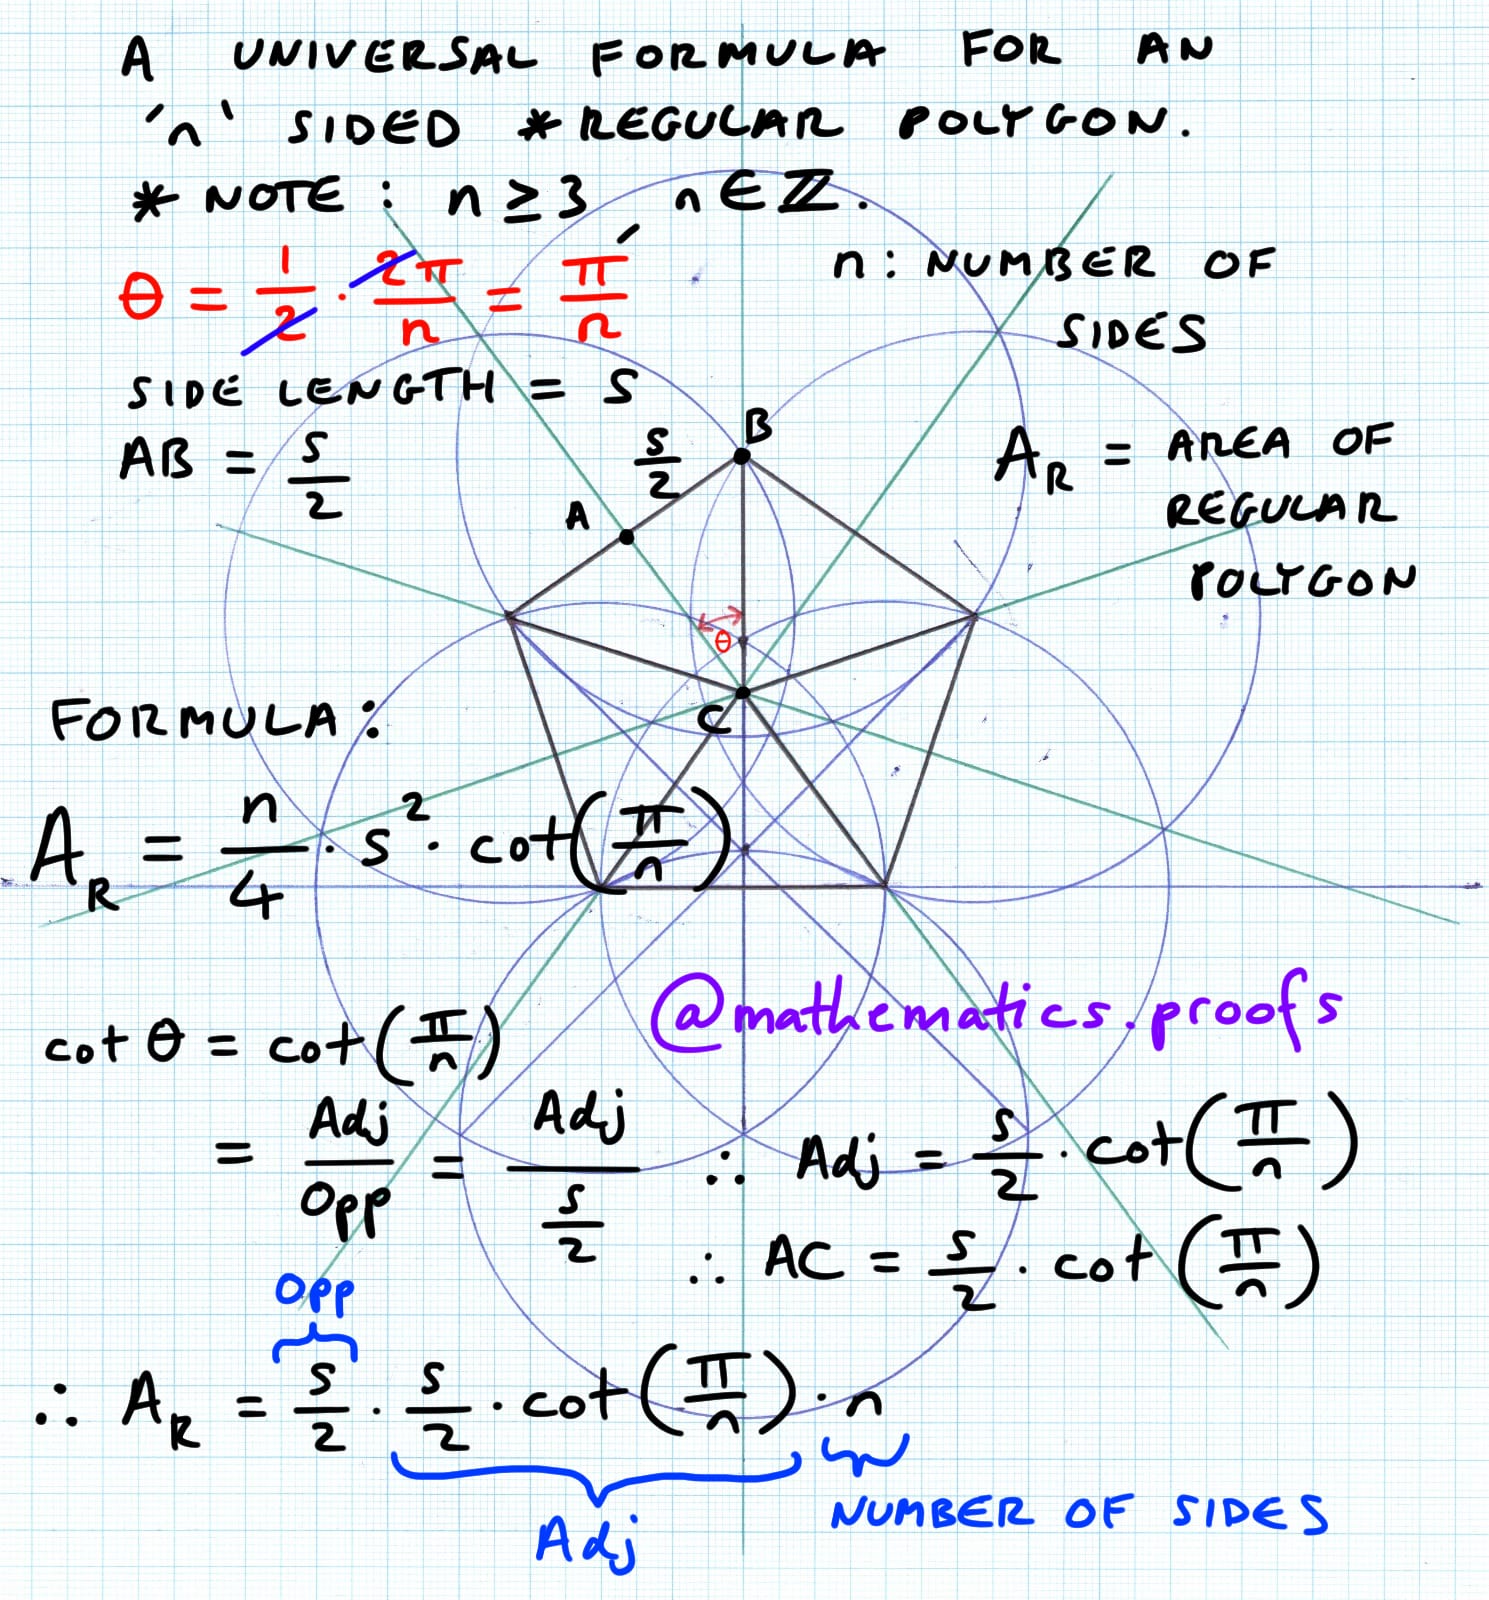 A UNIVERSAL FORMULA FOR AN
'n' SIDED * REGULAR POLYGON.
* NOTE: n ≥ 3 n ∈ ℤ.
θ = 1/2 · 2π/n = π/n
n: NUMBER OF
SIDES
SIDE LENGTH = s
AB = s/2
s/2
B
A
A_R = AREA OF
REGULAR
POLYGON
θ
C
FORMULA:
A_R = n/4 · s² · cot(π/n)
@mathematics.proofs
cot θ = cot(π/n)
= Adj/Opp = Adj/(s/2) ∴ Adj = s/2 · cot(π/n)
∴ AC = s/2 · cot(π/n)
Opp
∴ A_R = s/2 · s/2 · cot(π/n) · n
Adj
NUMBER OF SIDES